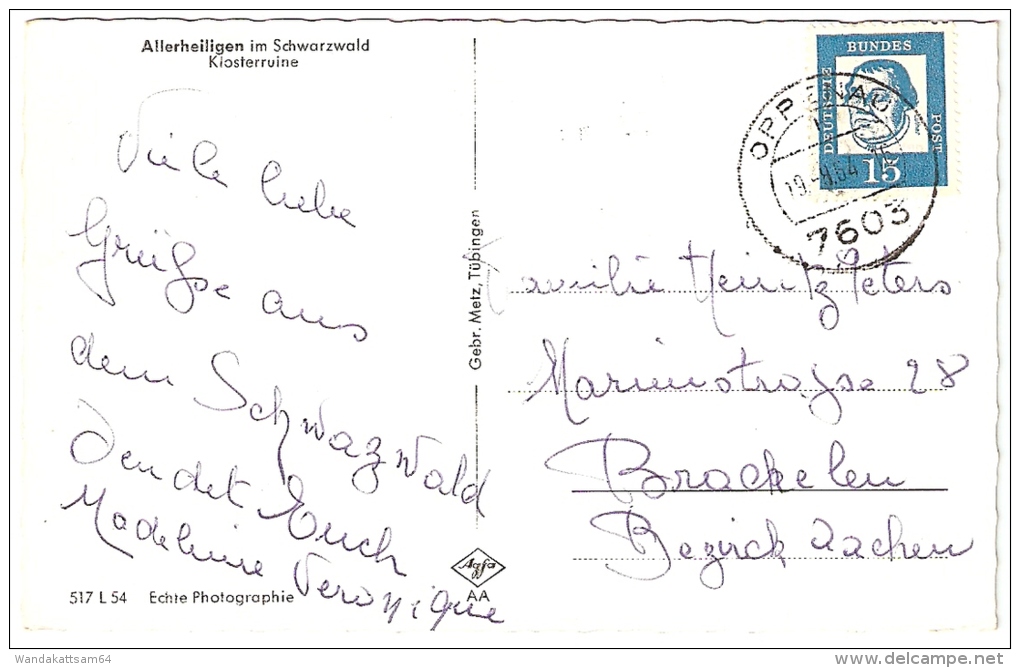 Allerheiligen im Schwarzwald
Klosterruine
Viele liebe
Grüße aus
dem Schwazwald
sendet Euch
Madeleine Veronique
517 L 54 Echte Photographie
Gebr. Metz, Tübingen
Agfa
AA
DEUTSCHE
BUNDES
POST
15
OPPENAU
19.-8.64
7603
Familie Heintz Peters
28
Brackelen
Bezirck Aachen
Wandakattsam64
http://www.delcampe.net